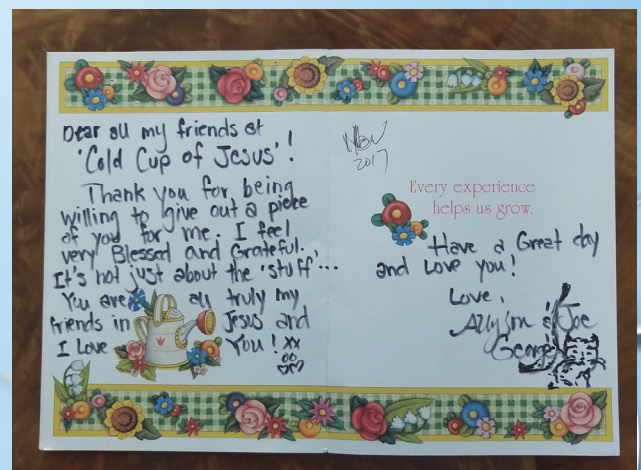 Dear all my friends at
'Cold Cup of Jesus'!
Thank you for being
willing to give out a piece
of you for me. I feel
very Blessed and Grateful.
It's not just about the 'stuff'...
You are all truly my
friends in Jesus and
I Love You! xx
oo
Nov
2017
Every experience
helps us grow.
Have a Great day
and Love you!
Love,
Allyson & Joe
George